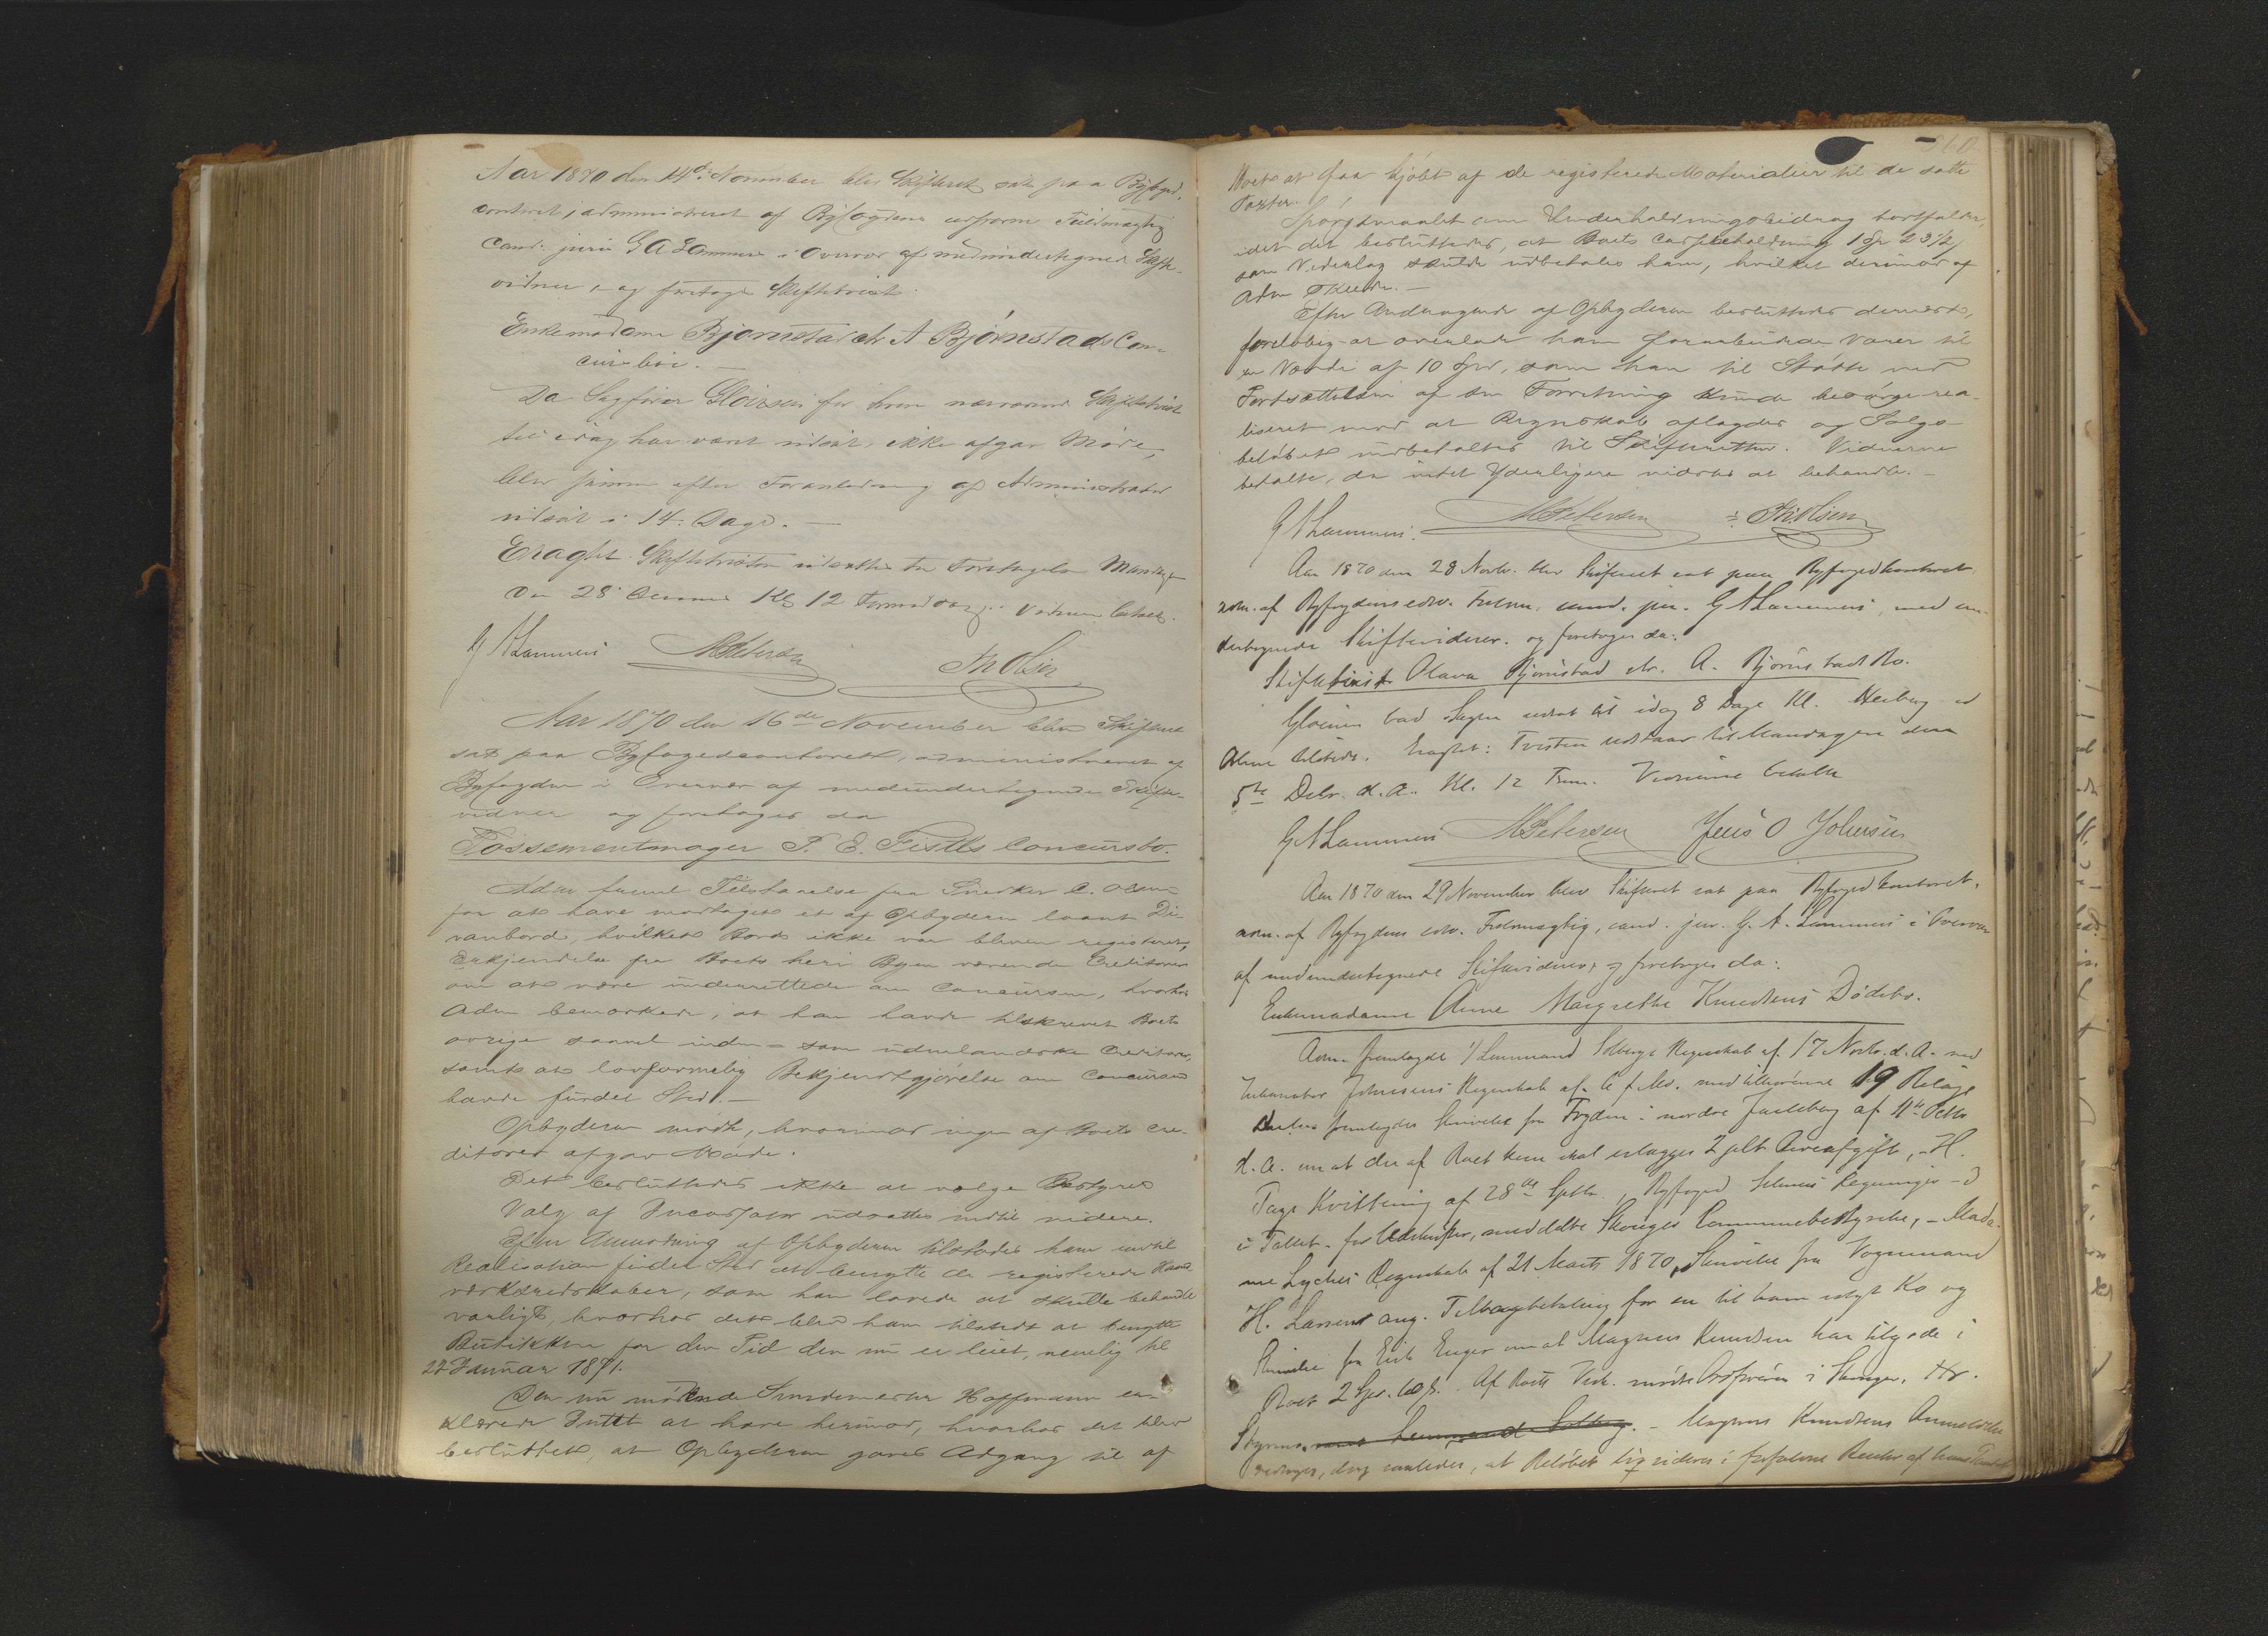 Aar 1870 den 14de November blev Skifteret sat paa Byfoged-
contoret, administreret af Byfogdens edsvorne Fuldmægtig
Cand: juris G A Lammers i Overvær af medundertegnede Skifte-
vidner, og foretoges Skiftetvist
Enkemadame Bjørnstad ctr A Bjørnstads Con-
cursbo. —
Da Sagfører Gloersen for hvem nærværende Skiftetvist
til idag har været udsat, ikke afgav Møde,
blev samme efter Foranledning af Administrator
udsat i 14. Dage. —
Eragtet: Skiftetvisten udsættes til Foretagelse Mandag
den 28de dennes Kl 12 Formiddag. Vidnerne betalt.
G A Lammers MPetersen Th Olsen
Aar 1870 den 16de November blev Skifteret
sat paa Byfogedcontoret, administreret af
Byfogden i Overvær af medundertegnede Skifte-
vidner og foretoges da
Possementmager P. E. Fistls Concursbo.
Adm freml Tilstaaelse fra Snedker C. Olsen
for at have modtaget et af Opbyderen laant Di-
vanbord, hvilket Bord ikke var bleven registreret,
Erkjendelse fra Boets heri Byen værende Creditorer
om at være underrettede om Concursen, hvorhos
Adm bemærkede, at han havde tilskrevet Boets
øvrige saavel inden- som udenlandske Creditorer,
samt at lovformelig Bekjendtgjørelse om Concursen
havde fundet Sted. —
Opbyderen mødte, hvorimod ingen af Boets Cre-
ditorer afgav Møde.
Det besluttedes ikke at vælge Bestyrer
Valg af Incassator udsættes indtil videre.
Efter Anmodning af Opbyderen tilstodes ham indtil
Realisation finder Sted at benytte de registrerede Haand-
værksredskaber, som han lovede at skulle behandle
varligt, hvorhos det blev ham tilstedt at benytte
Butikken for den Tid den nu er leiet, nemlig til
27 Januar 1871.
Den nu mødende Smedemester Hoffmann er-
klærede Intet at have herimod, hvorhos det blev
besluttet, at Opbyderen gaves Adgang til af
Boet at faa kjøbt af de registrerede Materialier til de satte
Taxter.
Spørgsmaalet om Underholdningsbidrag bortfalder,
idet det besluttedes, at Boets Cassebeholdning 1 Spd 23 1/2 s
som Vederlag skulde udbetales ham, hvilket derimod af
Adm skeede. —
Efter Andragende af Opbyderen besluttedes dernæst,
foreløbig at overlade ham forarbeidede Varer til
en Værdi af 10 Spd, som han til Støtte ved
Fortsættelsen af sin Forretning kunde besørge rea-
liseret mod at Regnskab aflagdes og Salgs-
beløbet indbetaltes til Skifteretten. Vidnerne
betalte, da intet Yderligere vidstes at behandle. —
G A Lammers. MPetersen Th Olsen
Aar 1870 den 28 Novbr. blev Skifteret sat paa Byfogedkontoret
adm. af Byfogdens edsv. Fuldm. cand. jur. G A Lammers, med un-
dertegnede Skiftevidner. og foretoges da:
Skiftetvist Olava Bjørnstad ctr. A. Bjørnstads Bo.
Gloersen bad Sagen udsat til idag 8 Dage Kl. Heiberg
Adm tilstede. Eragtet: Tvisten udstaar til Mandagen den
5te Debr. d.A. Kl. 12 Frm. Vidnerne betalte
G A Lammers MPetersen Jens O Johnsen
Aar 1870 den 29 November blev Skifteret sat paa Byfogedkontoret,
adm. af Byfogdens edsv. Fuldmægtig, cand. jur. G. A. Lammers i Overvær
af medundertegnede Skiftevidner, og foretoges da:
Enkemadame Anne Margrethe Knudsens Dødsbo.
Adm. fremlagde 1/ Lensmand Solbergs Regnskab af 17 Novbr. d.A. med
Inkassator Johnsens Regnskab af s. med tilhørende 19 Bilage
fremlagdes Skrivelse fra Fogden i nordre Jarlsberg af 11te Octbr
d.A. om at der af Boet kun skal erlægges 2 pCt Arveafgift, - H.
Kvittering af 28de Septbr., Byfoged Regninger - 3
i Tallet - for Udskrifter, meddelte Skouger Communebestyrelse, - Mada-
me Lyches Regnskab af 21 Marts 1870, Skrivelse fra Vognmand
H. Larsen ang. Tilbagebetaling for en til ham solgt Ko og
Skrivelse fra Erik Enger om at Magnus Knudsen har tilgode i
Boet 2 Spd. 60 s. Af Boets Vedk. mødte Ordføreren i Skouger, Hr.
Lensmand Solberg. - Magnus Knudsens Anmeldelse
, dog saaledes, at Beløbet liqvideres i forfaldne Renter af hans